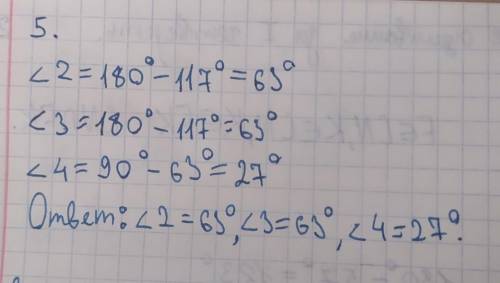 5.
∠2=180°-117°=63°
∠3=180°-117°=63°
∠4=90°-63°=27°
Ответ: ∠2=63°, ∠3=63°, ∠4=27°.